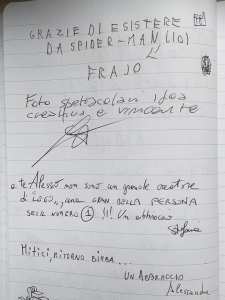 GRAZIE DI ESISTERE
DA SPIDER-MAN (IO)
FRAJO
Foto spettacolari idea
creativa e vincente
a te Alessio non sono un grande creatore
di, una gran bella persona
sei il numero 1 Sì! Un abbraccio
Stefania
Mitici, ritorno birra...
UN ABBRACCIO
Alessandro